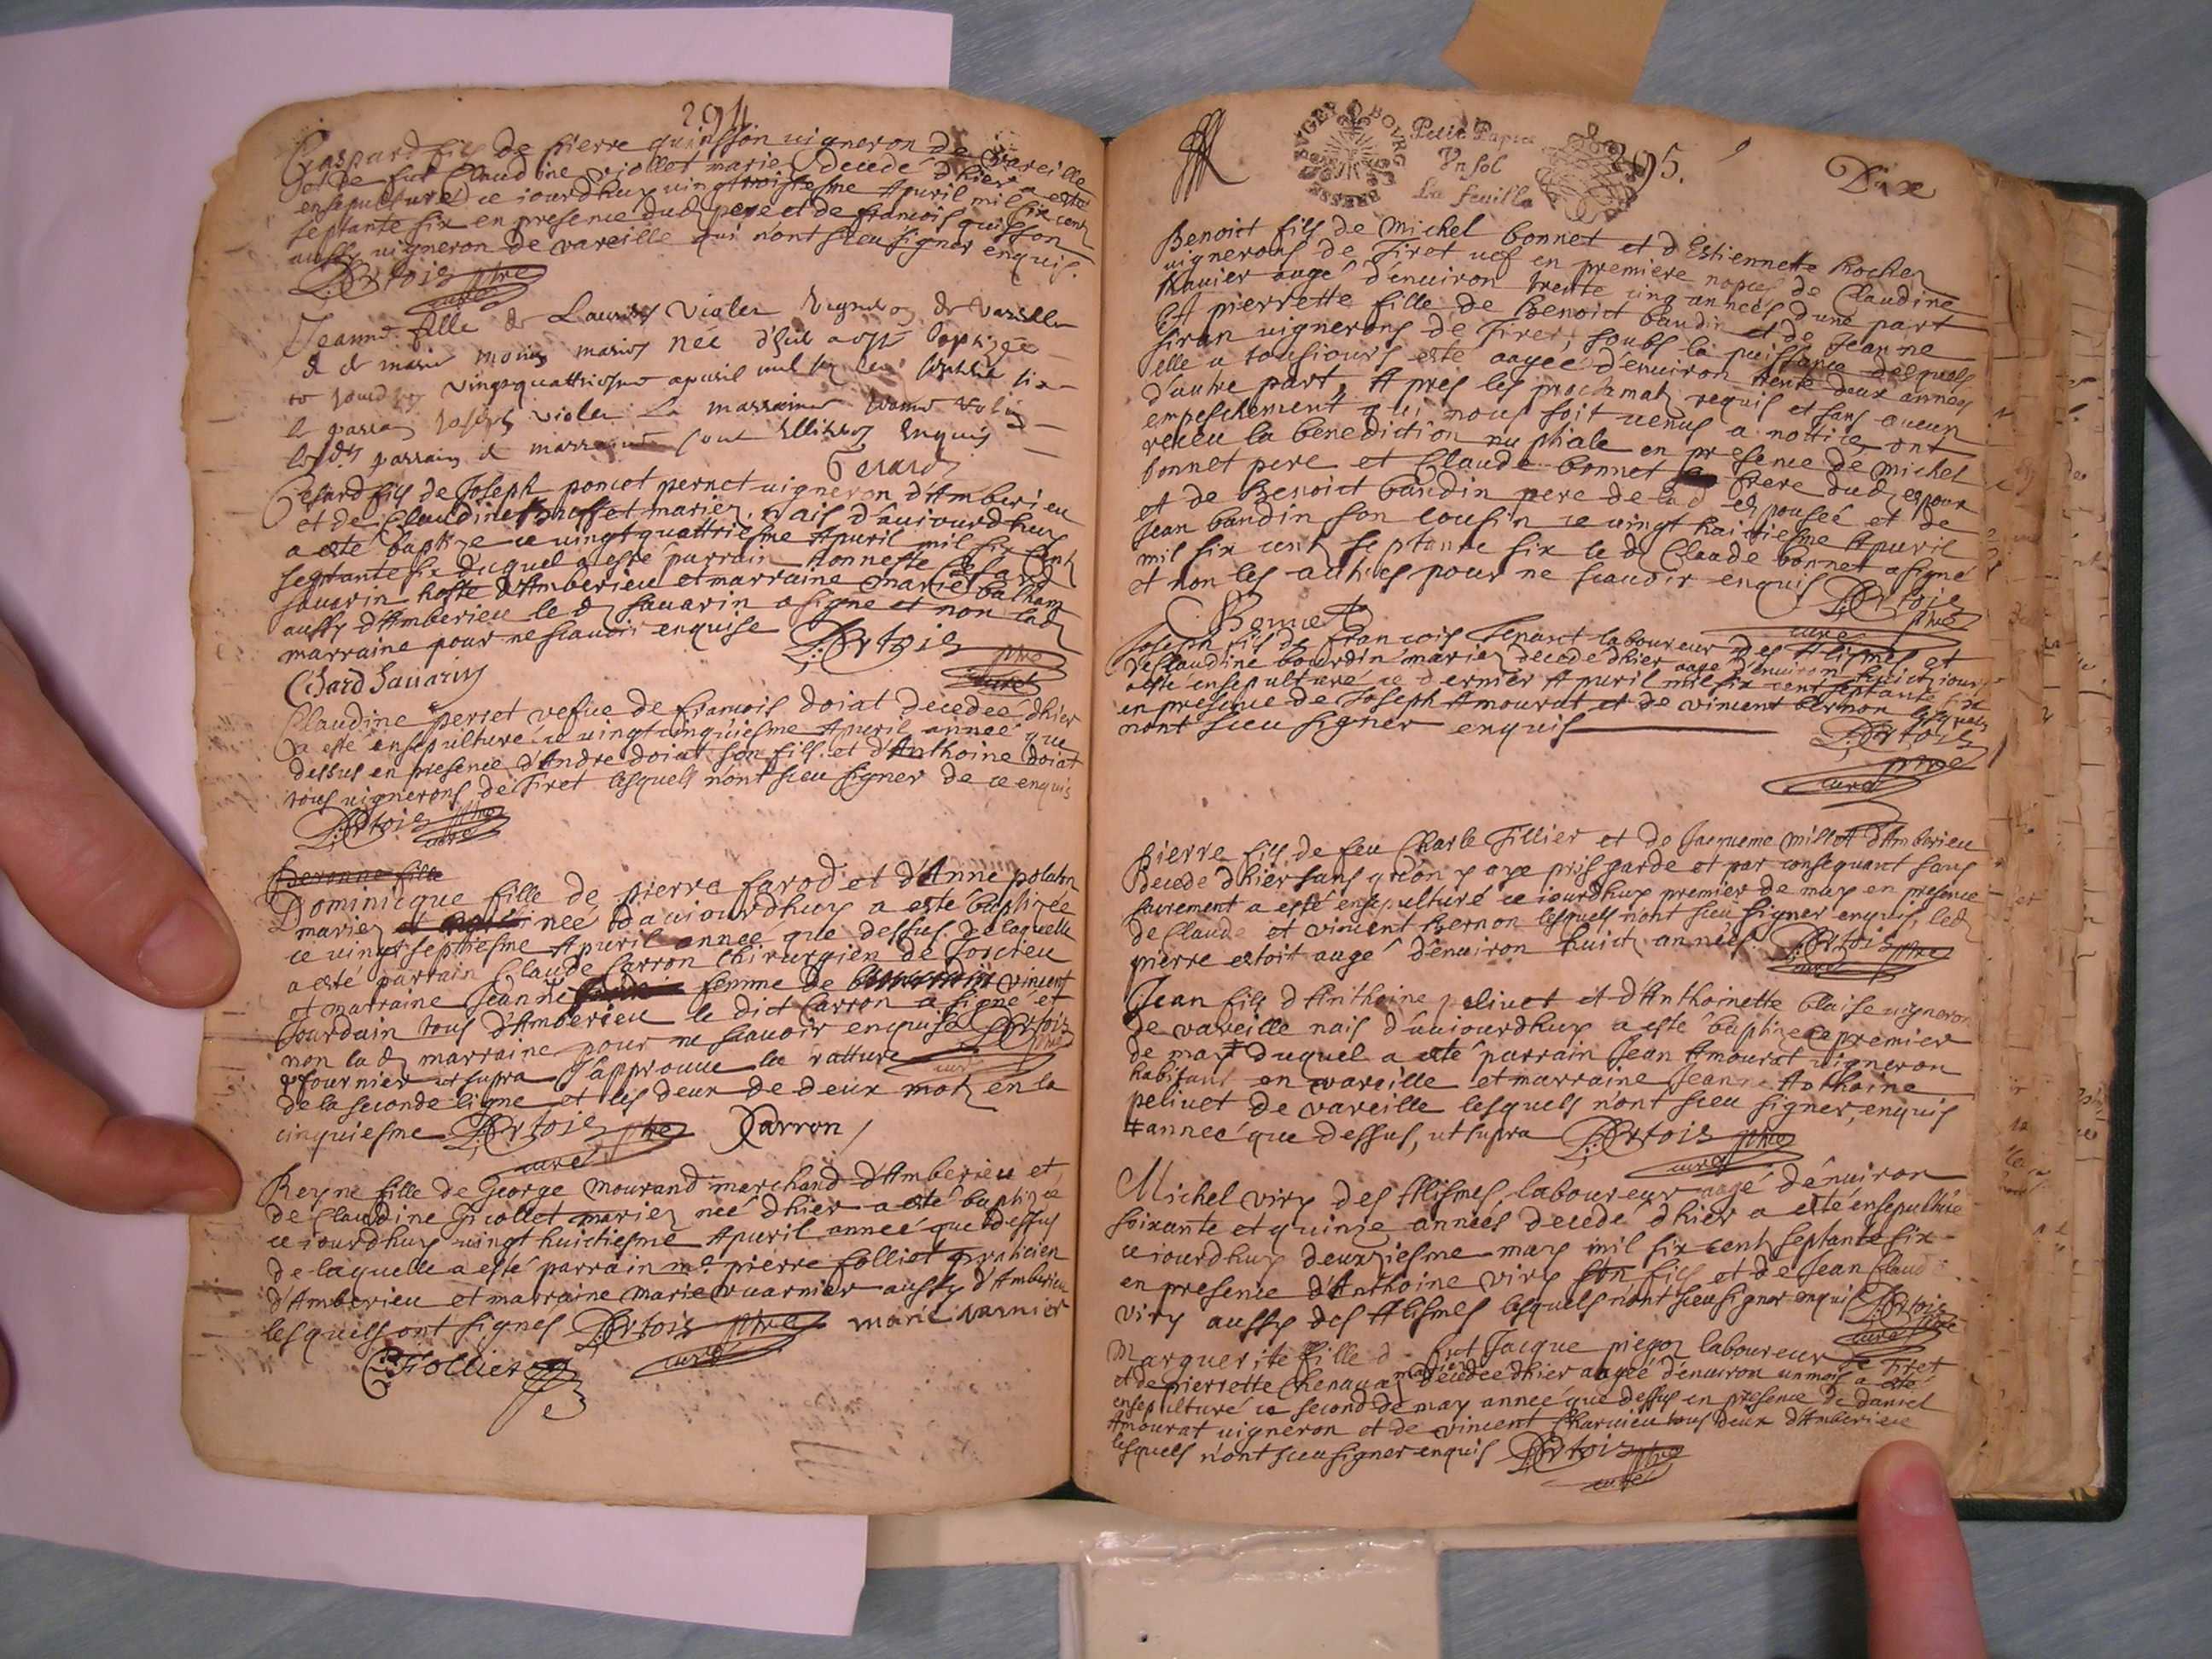 294
Gaspard fils de pierre quinsson uigneron de vareille
et de fut Claudine viollet mariez decedé dhier a esté
ensepulturé ce iourdhuy uingttroisiesme Apuril mil six centz
septante six en presence dud pere et de francois quisson
aussy uigneron de vareille qui n'ont sceu signer enquis.
D: Ortois pbre
curé
Jeanne fille de Laurens violet de vareille
& de marie mariez née d'hier a esté baptizée
ce jourdhuy vingtquattriesme apuril mil six cent septante six
le parrain Joseph violet La marraine
lesdts parrain & marraine sont illitrez enquis
Gerard
Cesard fils de Joseph poncet pernet uigneron d'Amberieu
et de Claudine mariez, nais d'auiourdhuy
a esté baptizé ce uingtquattriesme Apuril mil six centz
septante six duquel a esté parrain honneste Cesard
sauarin hoste d'Amberieu et marraine marie balland
aussy d'Amberieu le d sauarin a signé et non lad
marraine pour ne scauoir enquise D: Ortois pbre
curé
Cesard Sauarin
Claudine perret vefue de francois doiat decedeé dhier
a esté ensepulturé ce uingtcinquiesme Apuril anneé que
dessus en presence d'Andre doiat son fils et d'Anthoine doiat
tous uignerons de Tiret lesquels n'ont sceu signer de ce enquis
D: Ortois pbre
curé
fille
Dominicque fille de pierre farod et d'Anne
mariez et neé d'auiourdhuy a esté baptizeé
ce uingtseptiesme Apuril anneé que dessus de laquelle
a esté parrain Claude Carron Chirurgien de Torcieu
et marraine Jeanne femme de vincent
Jourdain tous d'Amberieu le dict Carron a signé et
non lad marraine pour ne scauoir enquise D: Ortois pbre
fournier ut supra J'approuue la ratture curé
de la seconde ligne et les deux de deux motz en la
cinquiesme D: Ortois pbre Carron
curé
Reyne fille de George mourand marchand d'Amberieu et
de Claudine Gicollet mariez neé dhier a esté baptizeé
ce iourdhuy uingt huictiesme Apuril anneé que dessus
de laquelle a esté parrain me. pierre folliet praticien
d'Amberieu et marraine marie vuarnier aussy d'Amberieu
lesquels ont signes D: Ortois pbre marie varnier
curé
Folliet
BOVRG
Petit Papier
Vn sol
La feuille
295.
Dix
Benoict fils de Michel bonnet et d'Estiennette Rochez
uignerons de Tiret uef en premiere nopces de Claudine
Rauier augé d'enuiron trente cinq anneés d'une part
Et pierrette fille de Benoict baudin et de Jeanne
siran uignerons de Tiret, soubs la puissance desquels
elle a tousiours esté aageé d'enuiron trente deux anneés
d'autre part, Apres les proclamatz requis et sans aucun
empeschement qui nous soit uenus a nottice, ont
receu la benediction nuptiale en presence de Michel
bonnet pere et Claude bonnet frere dud espoux
et de Benoict baudin pere de lad espouseé et de
Jean baudin son cousin ce uingt huictiesme Apuril
mil six centz septante six le d Claude bonnet a signé
et non les autres pour ne scauoir enquis D: Ortois
pbre
Bonnet curé
Joseph fils de francois Tenaret laboureur des Alismes et
de Claudine bourdin mariez decedé dhier aagé d'enuiron huict iours
a esté ensepulturé ce dernier Apuril mil six cent septante six
en presence de Joseph Amourat et de vincent bernon lesquels
n'ont sceu signer enquis D: Ortois
pbre
curé
Pierre fils de feu Charle Tillier et de Jacqueme millet d'Amberieu
Decedé dhier sans qu'on y aye pris garde et par consequant sans
sacrement a esté ensepulturé ce iourdhuy premier de may en presence
de Claude et vincent bernon lesquels n'ont sceu signer enquis, led
pierre estoit augé d'enuiron huict anneés D: Ortois pbre
curé
Jean fils d'Anthoine peliuet et d'Anthoinette blaise uigneron
de vareille nais d'auiourdhuy a esté baptizé ce premier
de may ‡ duquel a esté parrain Jean Amourat uigneron
habitant en vareille et marraine Jeanne Anthoine
peliuet de vareille lesquels n'ont sceu signer, enquis
‡ anneé que dessus, ut supra D: Ortois pbre
curé
Michel viry des Alismes laboureur aagé d'enuiron
soixante et quinze anneés decedé dhier a esté ensepulturé
ce iourdhuy deuxiesme may mil six centz septante six
en presence d'Anthoine viry son fils et de Jean Claude
viry aussy des Alismes lesquels n'ont sceu signer enquis D: Ortois
curé pbre
Marguerite fille de fut Jacque piegoz laboureur de Tiret
et de pierrette Chenauaz mariez decedeé dhier aageé d'enuiron un mois a esté
ensepulturé ce second de may anneé que dessus en presence de daniel
Amourat uigneron et de vincent Charuieu tous deux d'Amberieu
lesquels n'ont sceu signer enquis D: Ortois pbre
curé